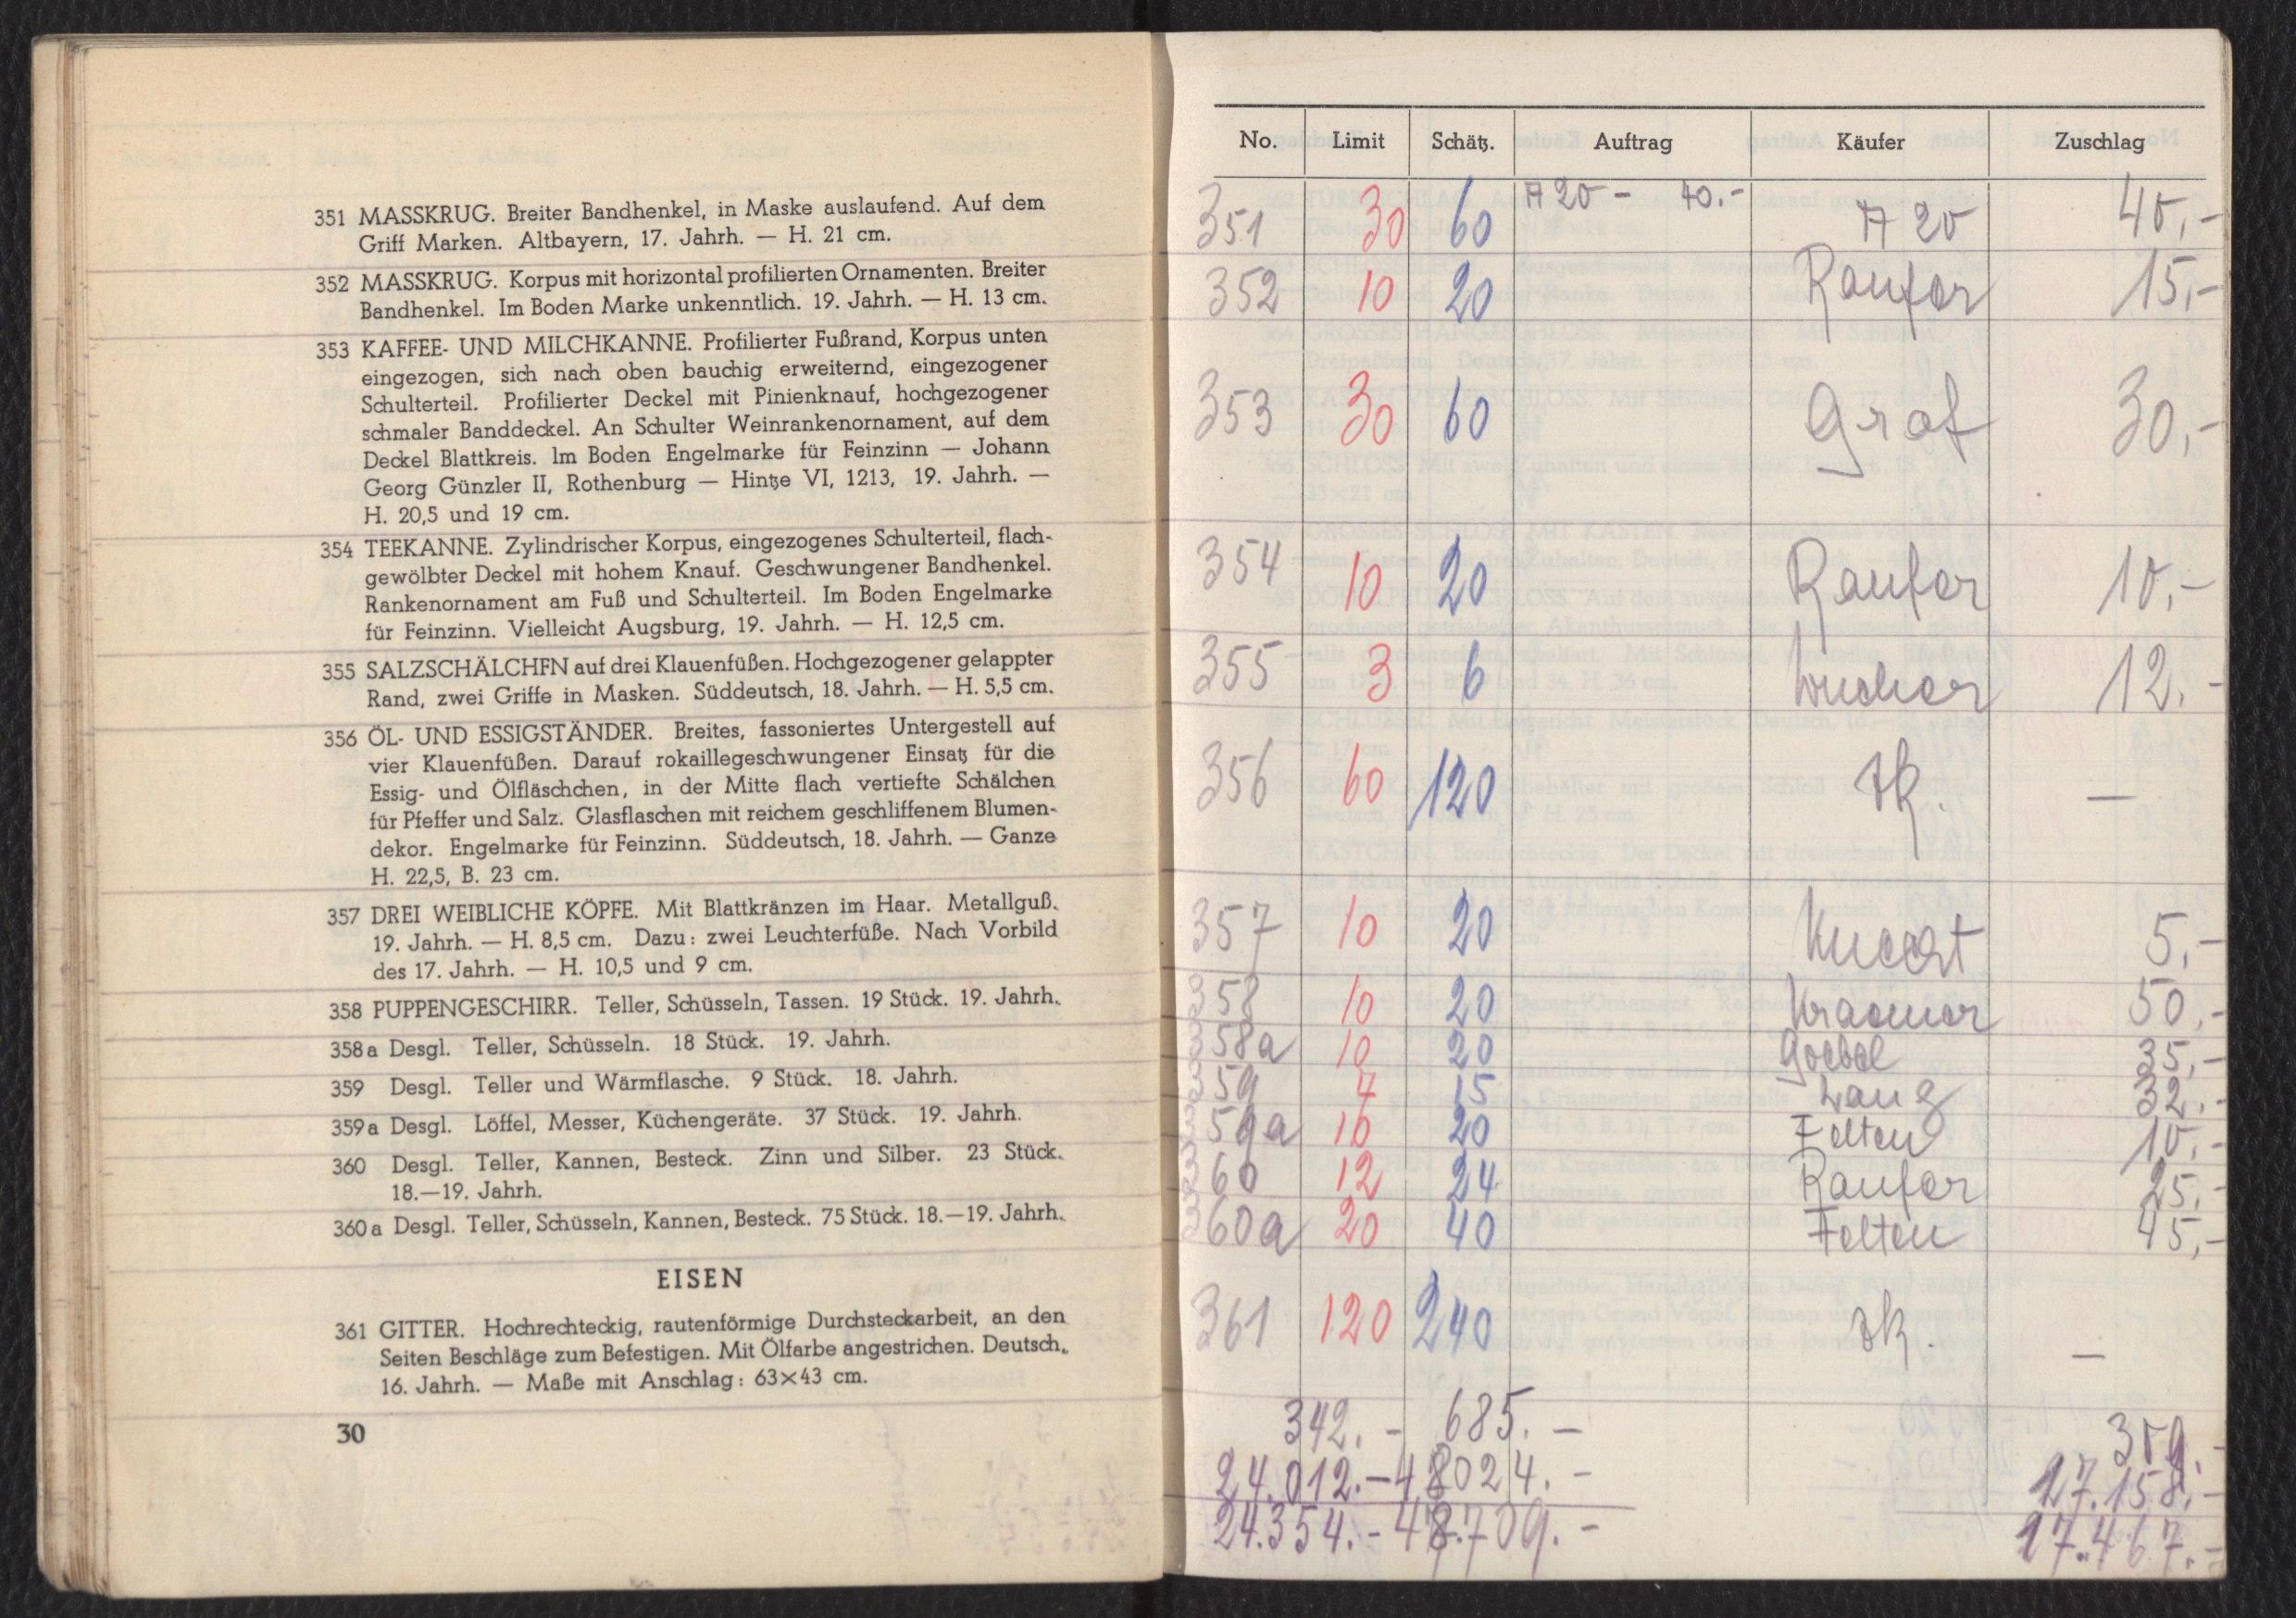 351 MASSKRUG. Breiter Bandhenkel, in Maske auslaufend. Auf dem
Griff Marken. Altbayern, 17. Jahrh. — H. 21 cm.
352 MASSKRUG. Korpus mit horizontal profilierten Ornamenten. Breiter
Bandhenkel. Im Boden Marke unkenntlich. 19. Jahrh. — H. 13 cm.
353 KAFFEE- UND MILCHKANNE. Profilierter Fußrand, Korpus unten
eingezogen, sich nach oben bauchig erweiternd, eingezogener
Schulterteil. Profilierter Deckel mit Pinienknauf, hochgezogener
schmaler Banddeckel. An Schulter Weinrankenornament, auf dem
Deckel Blattkreis. Im Boden Engelmarke für Feinzinn — Johann
Georg Günzler II, Rothenburg — Hintze VI, 1213, 19. Jahrh. —
H. 20,5 und 19 cm.
354 TEEKANNE. Zylindrischer Korpus, eingezogenes Schulterteil, flach-
gewölbter Deckel mit hohem Knauf. Geschwungener Bandhenkel.
Rankenornament am Fuß und Schulterteil. Im Boden Engelmarke
für Feinzinn. Vielleicht Augsburg, 19. Jahrh. — H. 12,5 cm.
355 SALZSCHÄLCHFN auf drei Klauenfüßen. Hochgezogener gelappter
Rand, zwei Griffe in Masken. Süddeutsch, 18. Jahrh. — H. 5,5 cm.
356 ÖL- UND ESSIGSTÄNDER. Breites, fassoniertes Untergestell auf
vier Klauenfüßen. Darauf rokaillegeschwungener Einsatz für die
Essig- und Ölfläschchen, in der Mitte flach vertiefte Schälchen
für Pfeffer und Salz. Glasflaschen mit reichem geschliffenem Blumen-
dekor. Engelmarke für Feinzinn. Süddeutsch, 18. Jahrh. — Ganze
H. 22,5, B. 23 cm.
357 DREI WEIBLICHE KÖPFE. Mit Blattkränzen im Haar. Metallguß.
19. Jahrh. — H. 8,5 cm. Dazu: zwei Leuchterfüße. Nach Vorbild
des 17. Jahrh. — H. 10,5 und 9 cm.
358 PUPPENGESCHIRR. Teller, Schüsseln, Tassen. 19 Stück. 19. Jahrh.
358a Desgl. Teller, Schüsseln. 18 Stück. 19. Jahrh.
359 Desgl. Teller und Wärmflasche. 9 Stück. 18. Jahrh.
359a Desgl. Löffel, Messer, Küchengeräte. 37 Stück. 19. Jahrh.
360 Desgl. Teller, Kannen, Besteck. Zinn und Silber. 23 Stück.
18.—19. Jahrh.
360a Desgl. Teller, Schüsseln, Kannen, Besteck. 75 Stück. 18.—19. Jahrh.
EISEN
361 GITTER. Hochrechteckig, rautenförmige Durchsteckarbeit, an den
Seiten Beschläge zum Befestigen. Mit Ölfarbe angestrichen. Deutsch,
16. Jahrh. — Maße mit Anschlag: 63×43 cm.
30
No. Limit Schätz. Auftrag Käufer Zuschlag
351 30 60 A 20 - 40.- A 20 40,-
352 10 20 Raufer 15,-
353 30 60 Graf 30,-
354 10 20 Raufer 10,-
355 3 6 12.-
356 60 120 —
357 10 20 5,-
358 10 20 Kraemer 50,-
358a 10 20 Goebel 35,-
359 7 15 Lang 32.-
359a 10 20 Felten 10.-
360 12 24 Raufer 25.-
360a 20 40 Felten 45,-
361 120 240 —
342.- 685.- 309.-
24.012.- 48024.- 17.158.-
24.354.- 48.709.- 17.467.-